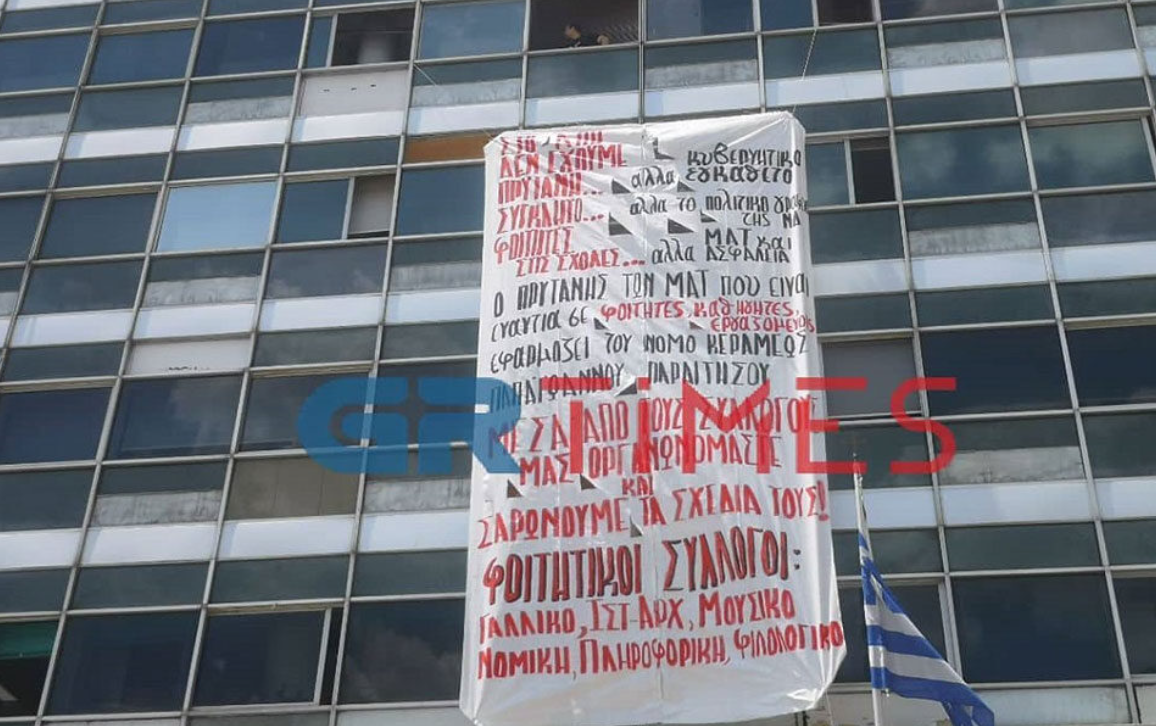 ΣΤΟ ΑΠΘ
ΔΕΝ ΕΧΟΥΜΕ
ΠΡΥΤΑΝΗ... αλλα κυβερνητικο εγκαθετο
ΣΥΓΚΛΗΤΟ... αλλα το πολιτικο
ΤΗΣ ΝΔ
ΦΟΙΤΗΤΕΣ
ΣΤΙΣ ΣΧΟΛΕΣ... αλλα ΜΑΤ και ΑΣΦΑΛΕΙΑ
Ο ΠΡΥΤΑΝΗΣ ΤΩΝ ΜΑΤ ΠΟΥ ΕΙΝΑΙ
ΕΝΑΝΤΙΑ ΣΕ ΦΟΙΤΗΤΕΣ, ΚΑΘΗΓΗΤΕΣ,
ΕΡΓΑΖΟΜΕΝΟΥΣ
ΕΦΑΡΜΟΖΕΙ ΤΟΥ ΝΟΜΟ ΚΕΡΑΜΕΩΣ
ΠΑΠΑΙΩΑΝΝΟΥ ΠΑΡΑΙΤΗΣΟΥ
ΜΕΣΑ ΑΠΟ ΤΟΥΣ ΣΥΛΛΟΓΟΥΣ
ΜΑΣ ΟΡΓΑΝΩΝΟΜΑΣΤΕ
ΚΑΙ
ΣΑΡΩΝΟΥΜΕ ΤΑ ΣΧΕΔΙΑ ΤΟΥΣ!
ΦΟΙΤΗΤΙΚΟΙ ΣΥΛΛΟΓΟΙ:
ΓΑΛΛΙΚΟ, ΙΣΤ-ΑΡΧ, ΜΟΥΣΙΚΟ
ΝΟΜΙΚΗ, ΠΛΗΡΟΦΟΡΙΚΗ, ΦΙΛΟΛΟΓΙΚΟ
GRTiMES